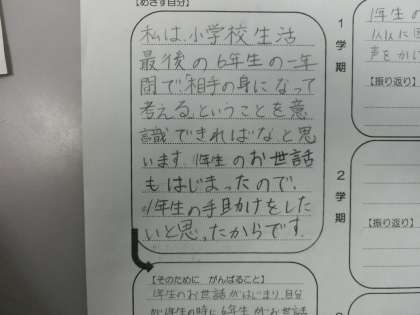 【めざす自分】
私は、小学校生活
最後の6年生の一年
間で「相手の身になって
考える」ということを意
識できればな、と思
います。1年生のお世話
もはじまったので、
1年生の手助けをした
いと思ったからです。
【そのために がんばること】
1年生のお世話がはじまり、自分
が1年生の時に6年生がお世話
1学期
1年生の
声をかけ
【振り返り】
2学期
【振り返り】